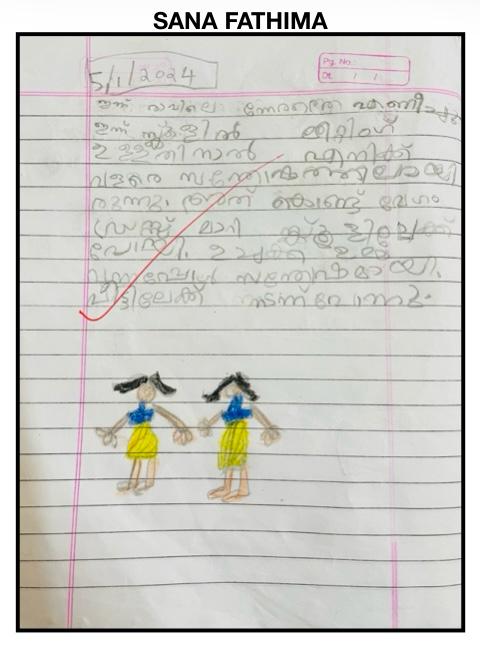 SANA FATHIMA
5/1/2024
Pg. No.:
Dt. / /
ഇന്ന് രാവിലെ നേരത്തെ എണീച്ചു
ഇന്ന് സ്കൂളിൽ മീറ്റിംഗ്
ഉള്ളതിനാൽ എനിക്ക്
വളരെ സന്തോഷത്തിലായി
രുന്നു. അത് കൊണ്ട് വേഗം
ഡ്രസ്സ് മാറി സ്കൂളിലേക്ക്
പോയി. ഉച്ചക്ക്
സന്തോഷമായി.
വീട്ടിലേക്ക് നടന്നു പോന്നു.